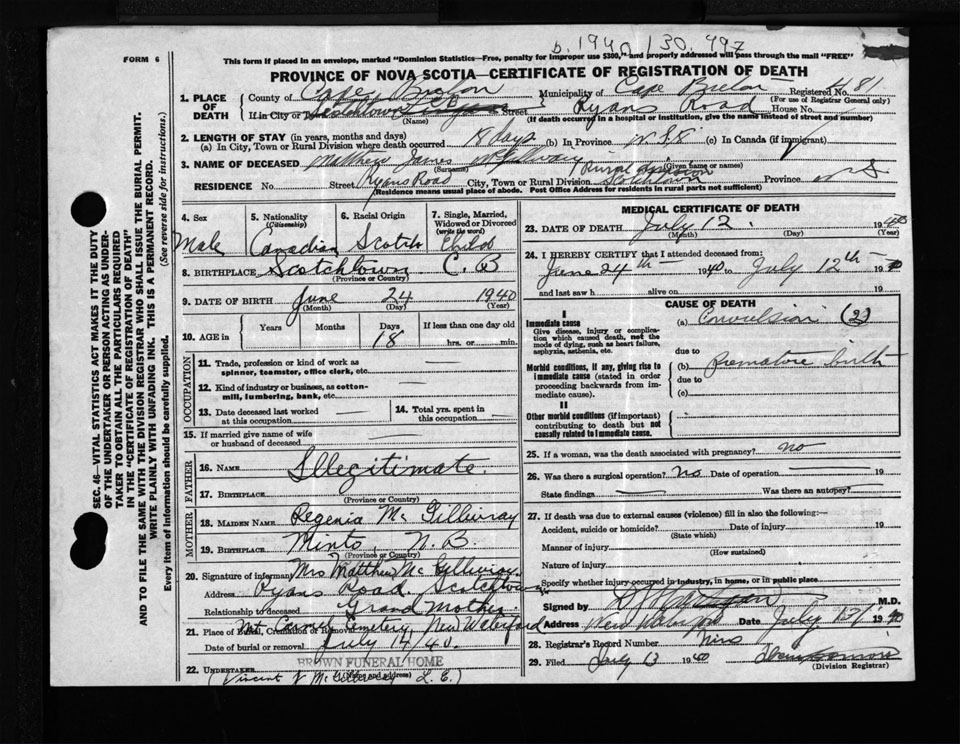 b. 1940 / 30, 497
FORM 6
This form if placed in an envelope, marked "Dominion Statistics—Free, penalty for improper use $300," and properly addressed will pass through the mail "FREE"
PROVINCE OF NOVA SCOTIA—CERTIFICATE OF REGISTRATION OF DEATH
Registered No. 481
(For use of Registrar General only)
1. PLACE OF DEATH
County of Cape Breton Municipality of Cape Breton
If in City or Town Street Ryans Road House No.
(Name) (If death occurred in a hospital or institution, give the name instead of street and number)
2. LENGTH OF STAY (in years, months and days)
(a) In City, Town or Rural Division where death occurred 18 days (b) In Province N.S. (c) In Canada (if immigrant)
3. NAME OF DECEASED Matthew James McGillivary
(Surname) (Given name or names)
RESIDENCE No. Street Ryans Road City, Town or Rural Division Rural division Scotchtown Province N S
(Residence means usual place of abode. Post Office Address for residents in rural parts not sufficient)
4. Sex Male
5. Nationality (Citizenship) Canadian
6. Racial Origin Scotch
7. Single, Married, Widowed or Divorced (write the word) Child
8. BIRTHPLACE Scotchtown C. B
(Province or Country)
9. DATE OF BIRTH June 24 1940
(Month) (Day) (Year)
10. AGE in Years Months Days 18 If less than one day old hrs. or min.
OCCUPATION
11. Trade, profession or kind of work as spinner, teamster, office clerk, etc. —
12. Kind of industry or business, as cotton-mill, lumbering, bank, etc. —
13. Date deceased last worked at this occupation —
14. Total yrs. spent in this occupation —
15. If married give name of wife or husband of deceased —
FATHER
16. NAME Illegitimate.
17. BIRTHPLACE
(Province or Country)
MOTHER
18. MAIDEN NAME Regenia Mc Gillivray
19. BIRTHPLACE Minto, N. B.
(Province or Country)
20. Signature of informant Mrs Matthew Mc Gillivray
Address Ryans Road. Scotchtown
Relationship to deceased Grand Mother.
21. Place of Burial, Cremation or Removal Mt. Carmel Cemetery, New Waterford
Date of burial or removal July 14/40.
22. UNDERTAKER BROWN FUNERAL HOME
(Name and address)
Vincent J McGillivray L. E.)
MEDICAL CERTIFICATE OF DEATH
23. DATE OF DEATH July 12. 1940
(Month) (Day) (Year)
24. I HEREBY CERTIFY that I attended deceased from:
June 24th 1940 to July 12th 19
and last saw h alive on 19
CAUSE OF DEATH
I
Immediate cause
Give disease, injury or complication which caused death, not the mode of dying, such as heart failure, asphyxia, asthenia, etc.
(a) Convulsion (2)
due to
Morbid conditions, if any, giving rise to immediate cause (stated in order proceeding backwards from immediate cause).
(b) Premature birth
due to
(c)
II
Other morbid conditions (if important) contributing to death but not causally related to immediate cause.
25. If a woman, was the death associated with pregnancy? no
26. Was there a surgical operation? no Date of operation — 19
State findings — Was there an autopsy? —
27. If death was due to external causes (violence) fill in also the following:—
Accident, suicide or homicide? Date of injury 19
(State which)
Manner of injury
(How sustained)
Nature of injury
Specify whether injury occurred in industry, in home, or in public place
Signed by M.D.
Address New Waterford Date July 12/ 1940
28. Registrar's Record Number
29. Filed July 13 1940
(Division Registrar)
SEC. 46—VITAL STATISTICS ACT MAKES IT THE DUTY
OF THE UNDERTAKER OR PERSON ACTING AS UNDERTAKER
TO OBTAIN ALL THE PARTICULARS REQUIRED
IN THE "CERTIFICATE OF REGISTRATION OF DEATH"
AND TO FILE THE SAME WITH THE DIVISION REGISTRAR WHO SHALL ISSUE THE BURIAL PERMIT.
WRITE PLAINLY WITH UNFADING INK. THIS IS A PERMANENT RECORD.
Every item of information should be carefully supplied. (See reverse side for instructions.)